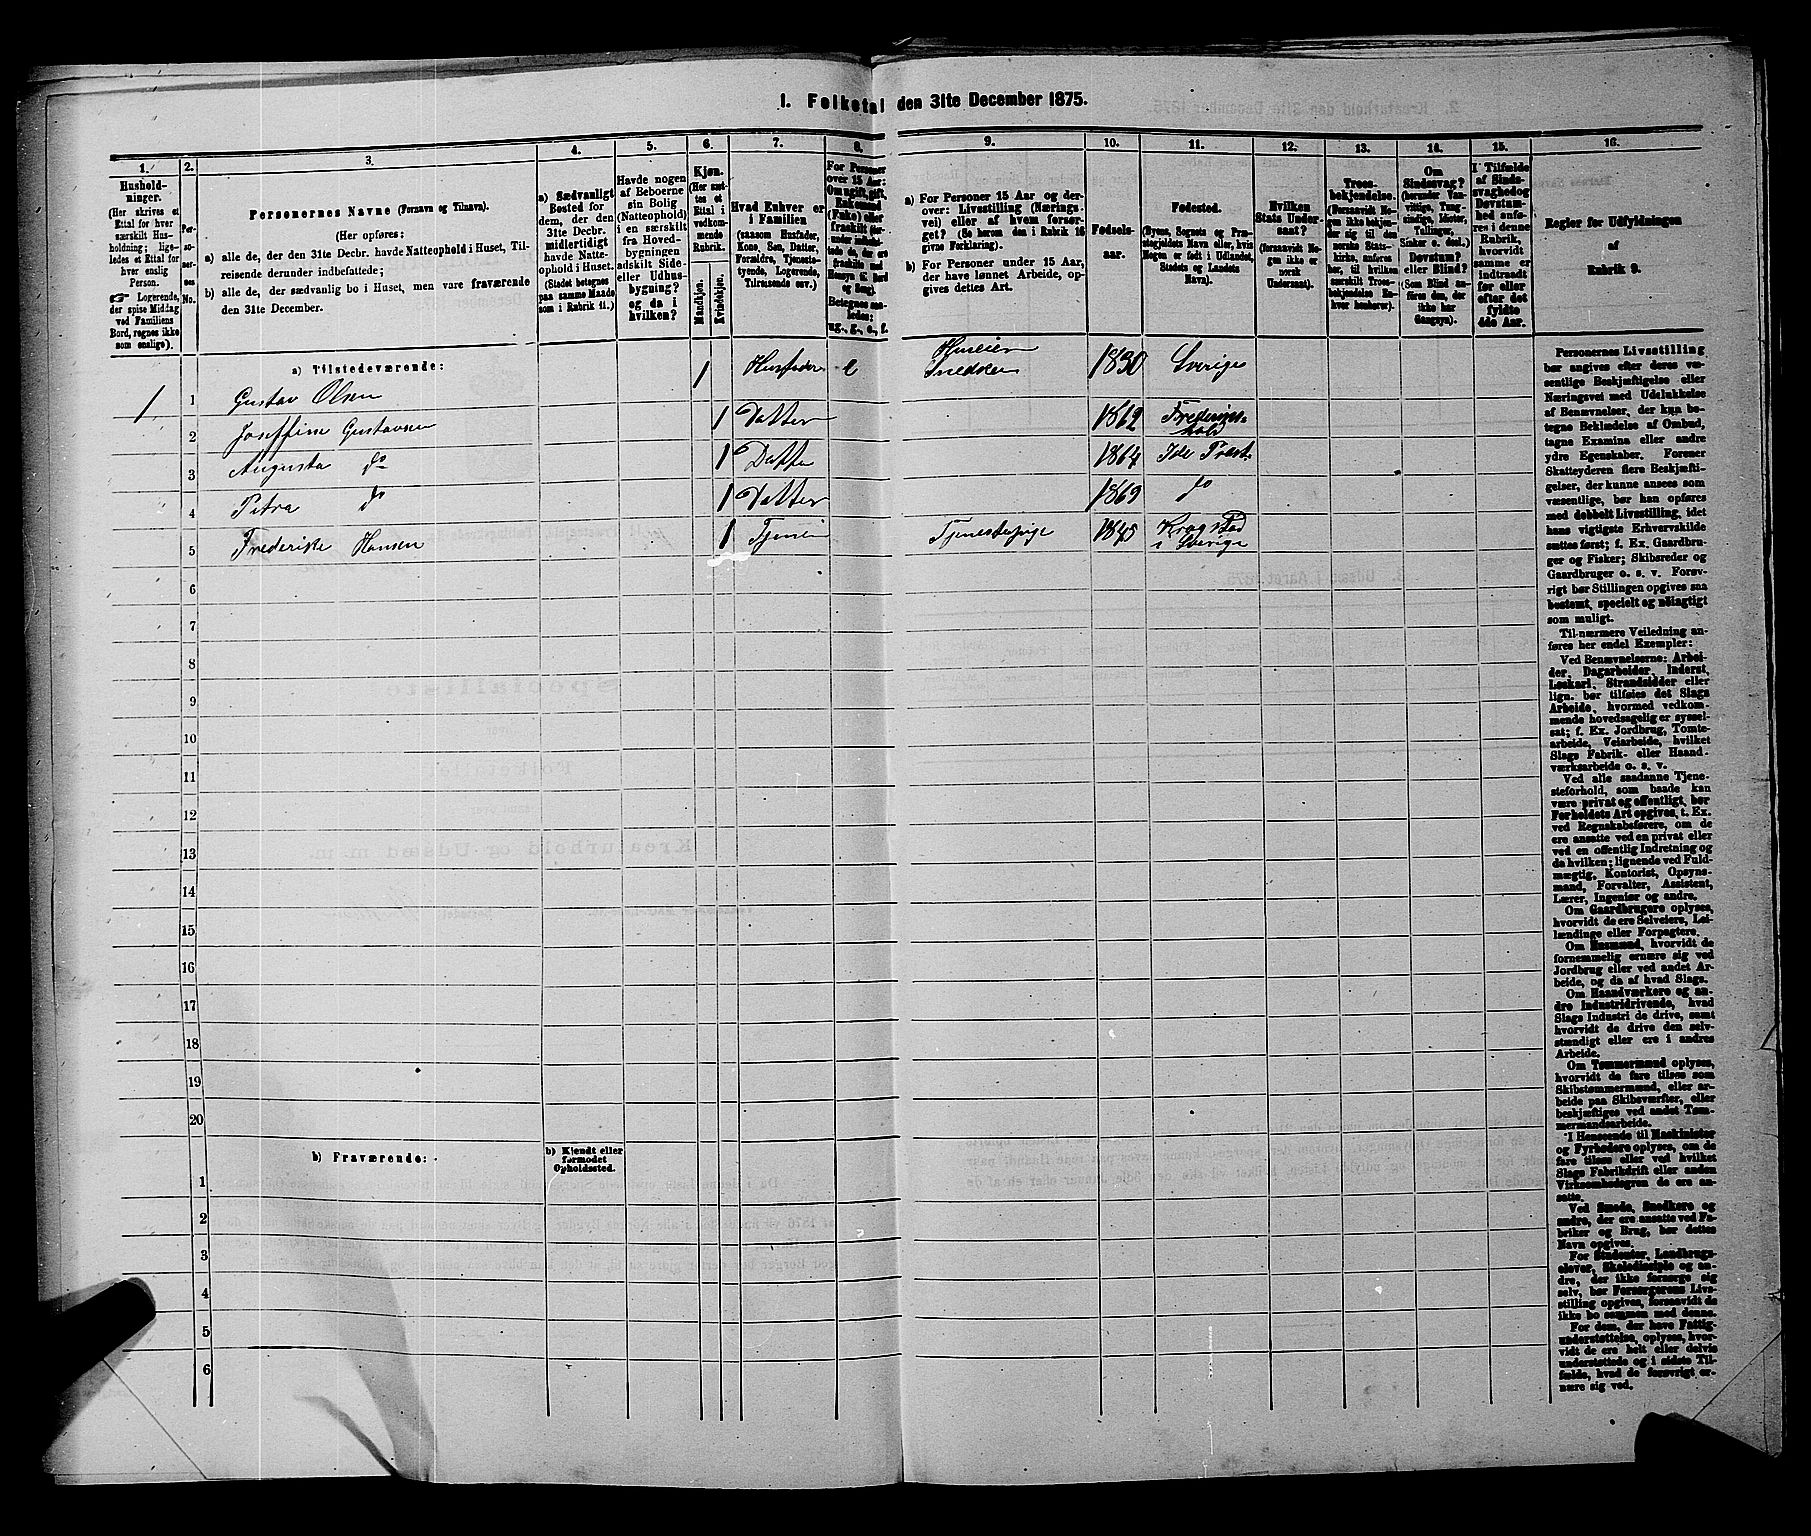 1. Folketal den 31te December 1875.
1. 2. 3. 4. 5. 6. 7. 8. 9. 10. 11. 12. 13. 14. 15. 16.
Hushold-
ninger.
(Her skrives et
Ettal for hver
særskilt Hus-
holdning; lige-
ledes et Ettal for
hver enslig
Person.
☞ Logerende,
der spise Middag
ved Familiens
Bord, regnes ikke
som enslige).
Per-
so-
ner-
nes
No.
Personernes Navne (Fornavn og Tilnavn).
(Her opføres:
a) alle de, der den 31te Decbr. havde Natteophold i Huset, Til-
reisende derunder indbefattede;
b) alle de, der sædvanlig bo i Huset, men vare fraværende
den 31te December.
a) Sædvanligt
Bosted for
dem, der den
31te Decbr.
midlertidigt
havde Natte-
ophold i Huset.
(Stedet betegnes
paa samme Maade
som i Rubrik 11.)
Havde nogen
af Beboerne
sin Bolig
(Natteophold)
i en særskilt
fra Hoved-
bygningen
adskilt Side-
eller Udhus-
bygning?
og da i
hvilken?
Kjøn.
(Her sæt-
tes et
Ettal i
vedkom-
mende
Rubrik.
Mandkjøn.
Kvindekjøn.
Hvad Enhver er
i Familien
(saasom Husfader,
Kone, Søn, Datter,
Forældre, Tjeneste-
tyende, Logerende,
Tilreisende osv.)
For Personer
over 15 Aar:
Om ugift, gift,
Enkemand
(Enke) eller
fraskilt
Betegnes saa-
ledes:
ug., g., e., f.
a) For Personer 15 Aar og der-
over: Livsstilling (Nærings-
vei) eller af hvem forsør-
get? (Se herom den i Rubrik 16
givne Forklaring).
b) For Personer under 15 Aar,
der have lønnet Arbeide, op-
gives dettes Art.
Fødsels-
aar.
Fødested.
(Byens, Sognets og Præ-
stegjeldets Navn eller, hvis
Nogen er født i Udlandet,
Stedets og Landets
Navn).
Hvilken
Stats Under-
saat?
(forsaavidt No-
gen ikke er
norsk
Undersaat).
Troes-
bekjendelse.
(Forsaavidt No-
gen ikke bekjen-
der sig til den
norske Stats-
kirke, anføres
her, til hvilken
særskilt Troes-
bekjendelse En-
hver henhører).
Om
Sindssvag?
(herunder Van-
vittige, Tung-
sindige, Idioter,
Tullinger,
Sinker o. desl.)
Døvstum?
eller Blind?
(Som Blind an-
føres den, der
ikke har
Gangsyn).
I Tilfælde
af Sinds-
svaghed og
Døvstum-
hed anfø-
res i denne
Rubrik,
hvorvidt
samme er
indtraadt
før eller
efter det
fyldte
4de Aar.
Regler for Udfyldningen
af
Rubrik 9.
a) Tilstedeværende:
1 1 Gustav Olsen 1 Husfader e Huseier Snedker 1830 Sverige
2 Joseffine Gustavsen 1 Datter 1862 Frederiks-
hald
3 Augusta do 1 Datter 1864 Ide Præst.
4 Petra do 1 Datter 1869 do
5 Frederike Hansen 1 Tjener Tjenestepige 1845 Krogstad
i Sverige
6
7
8
9
10
11
12
13
14
15
16
17
18
19
20
b) Fraværende:
b) Kjendt eller
formodet
Opholdssted.
1
2
3
4
5
6
Personernes Livsstilling
bør angives efter deres væ-
sentlige Beskjæftigelse eller
Næringsvei med Udelukkelse
af Benævnelser, der kun be-
tegne Beklædelse af Ombud,
tagne Examina eller andre
ydre Egenskaber. Forener
Skatteyderen flere Beskjæfti-
gelser, der kunne ansees som
væsentlige, bør han opføres
med dobbelt Livsstilling, idet
hans vigtigste Erhvervskilde
sættes først; f. Ex. Gaardbru-
ger og Fisker; Skibsreder og
Gaardbruger o. s. v. Forøv-
rigt bør Stillingen opgives saa
bestemt, specielt og nøiagtigt
som muligt.
Til nærmere Veiledning an-
føres her endel Exempler:
Ved Benævnelserne: Arbei-
der, Dagarbeider, Inderst,
Løskarl, Strandsidder eller
lign. bør tilføies det Slags
Arbeide, hvormed vedkom-
mende hovedsagelig er syssel-
sat; f. Ex. Jordbrug, Tomte-
arbeide, Veiarbeide, hvilket
Slags Fabrik- eller Haand-
værksarbeide o. s. v.
Ved alle saadanne Tjene-
steforhold, som baade kan
være privat og offentligt, bør
Forholdets Art opgives, f. Ex.
ved Regnskabsførere, om de
ere ansatte ved en privat eller
ved en offentlig Indretning og
da hvilken; lignende ved Fuld-
mægtig, Kontorist, Opsyns-
mand, Forvalter, Assistent,
Lærer, Ingeniør og andre.
Om Gaardbrugere oplyses,
hvorvidt de ere Selveiere, Lei-
lændinge eller Forpagtere.
Om Husmænd, hvorvidt de
fornemmelig ernære sig ved
Jordbrug eller ved andet Ar-
beide, og da af hvad Slags.
Om Haandværkere og an-
dre Industridrivende, hvad
Slags Industri de drive, samt
hvorvidt de drive den selv-
stændigt eller ere i andres
Arbeide.
Om Tømmermænd oplyses,
hvorvidt de fare tilsøs som
Skibstømmermænd, eller ar-
beide paa Skibsværfter, eller
beskjæftiges ved andet Tøm-
mermandsarbeide.
I Henseende til Maskinister
og Fyrbødere oplyses, om de
fare tilsøs eller ved hvilket
Slags Fabrikdrift eller anden
Virksomhedsgren de ere an-
satte.
Ved Smede, Snedkere og
andre, der ere ansatte ved Fa-
briker og Brug, bør dettes
Navn opgives.
For Studenter, Landbrugs-
elever, Skoledisciple og an-
dre, der ikke forsørge sig
selv, bør Forsørgerens Livs-
stilling opgives, forsaavidt de
ikke bo sammen med denne.
For dem, der have Fattig-
understøttelse, oplyses, hvor-
vidt de ere helt eller delvis
understøttede og i sidste Til-
fælde, hvad de forøvrigt er-
nære sig ved.